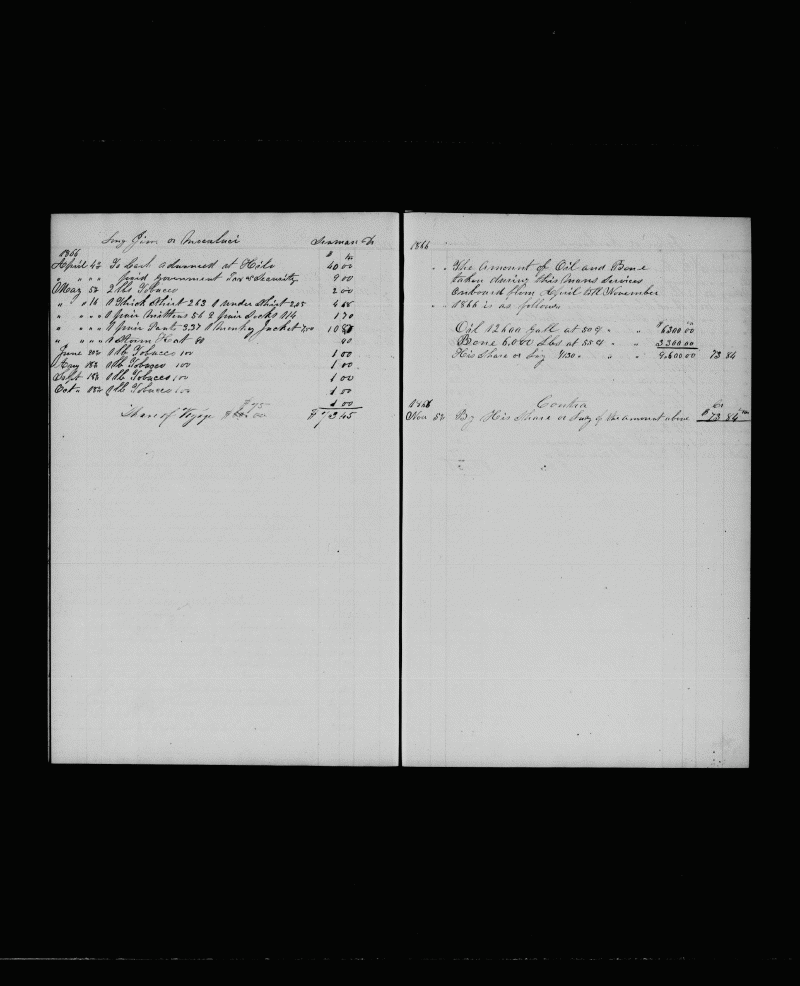 Long Jim or Seaman Dr
1866
April 4th To Cash advanced at Hilo 40 00
" " " " paid Government Tax & Security 9 00
May 5th 2 lbs Tobacco 2 00
" " 16 1 Thick Shirt 2 63 1 Under Shirt 2,05
" " " " 1 pair Mittens 56 2 pair Socks 1 70
" " " " 1 pair Pants 3.37 1 Monkey Jacket
" " " " 1 Hat 90 90
June 20th 1 lb Tobacco 100 1 00
Aug 18th 1 lb Tobacco 100 1 00
Sept 18th 1 lb Tobacco 100 1 00
Oct 18th 1 lb Tobacco 100 1 00
1 00
Share of Voyage
1866
" " The Amount of Oil and Bone
" " taken during this Mans Services
" " onboard from April till November
" " 1866 is as follows
Oil 12600 Gall at 50 ¢ " " $ 6300 00
Bone 6,000 Lbs at 55 ¢ " " 3 300 00
His Share or Lay 1/130 " " " 9,600 00 73 84
1866 Contra Cr
Nov 5th By His Share or Lay of the amount above $ 73 84